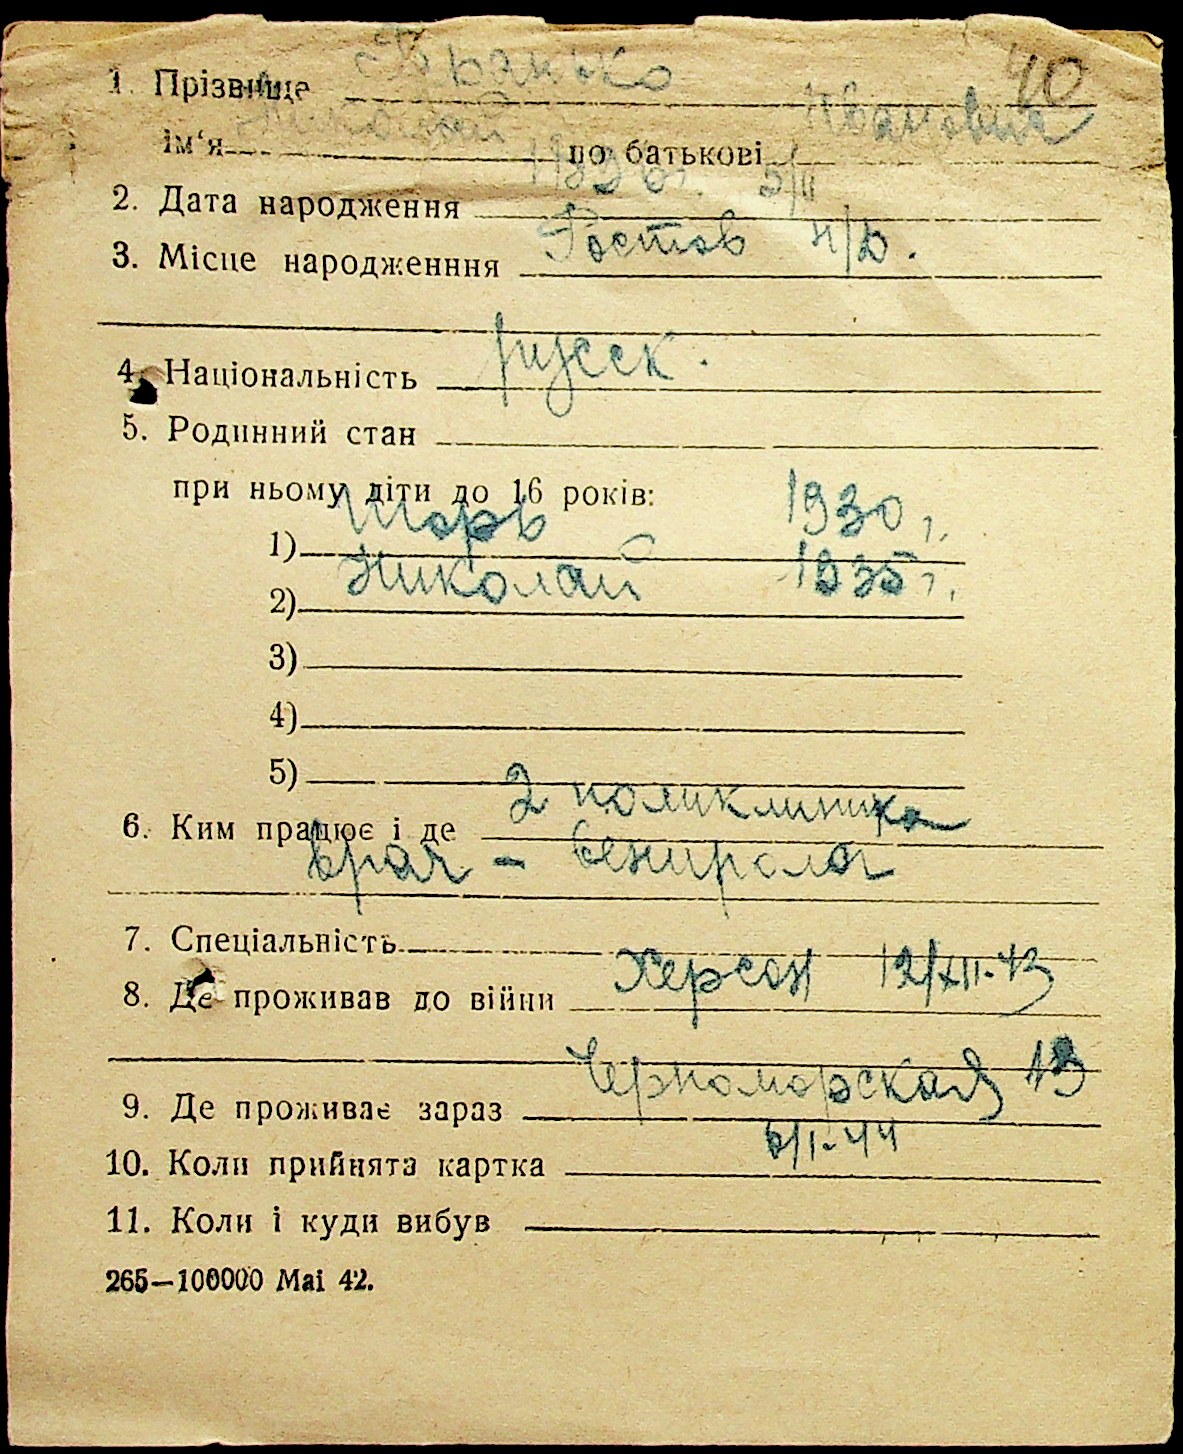 40
1. Прізвище
Ім‘я Николай по батькові Иванович
2. Дата народження 5/II
3. Місце народженння Ростов н/Д.
4. Національність русск.
5. Родинний стан
при ньому діти до 16 років:
1) Игорь 1930 г.
2) Николай 1935 г.
3)
4)
5)
6. Ким працює і де 2 поликлиника
врач – венеролог
7. Спеціальність
8. Де проживав до війни Херсон 12/XII-43
Черноморская 13
9. Де проживає зараз
10. Коли прийнята картка 6/I-44
11. Коли і куди вибув
265—100000 Mai 42.